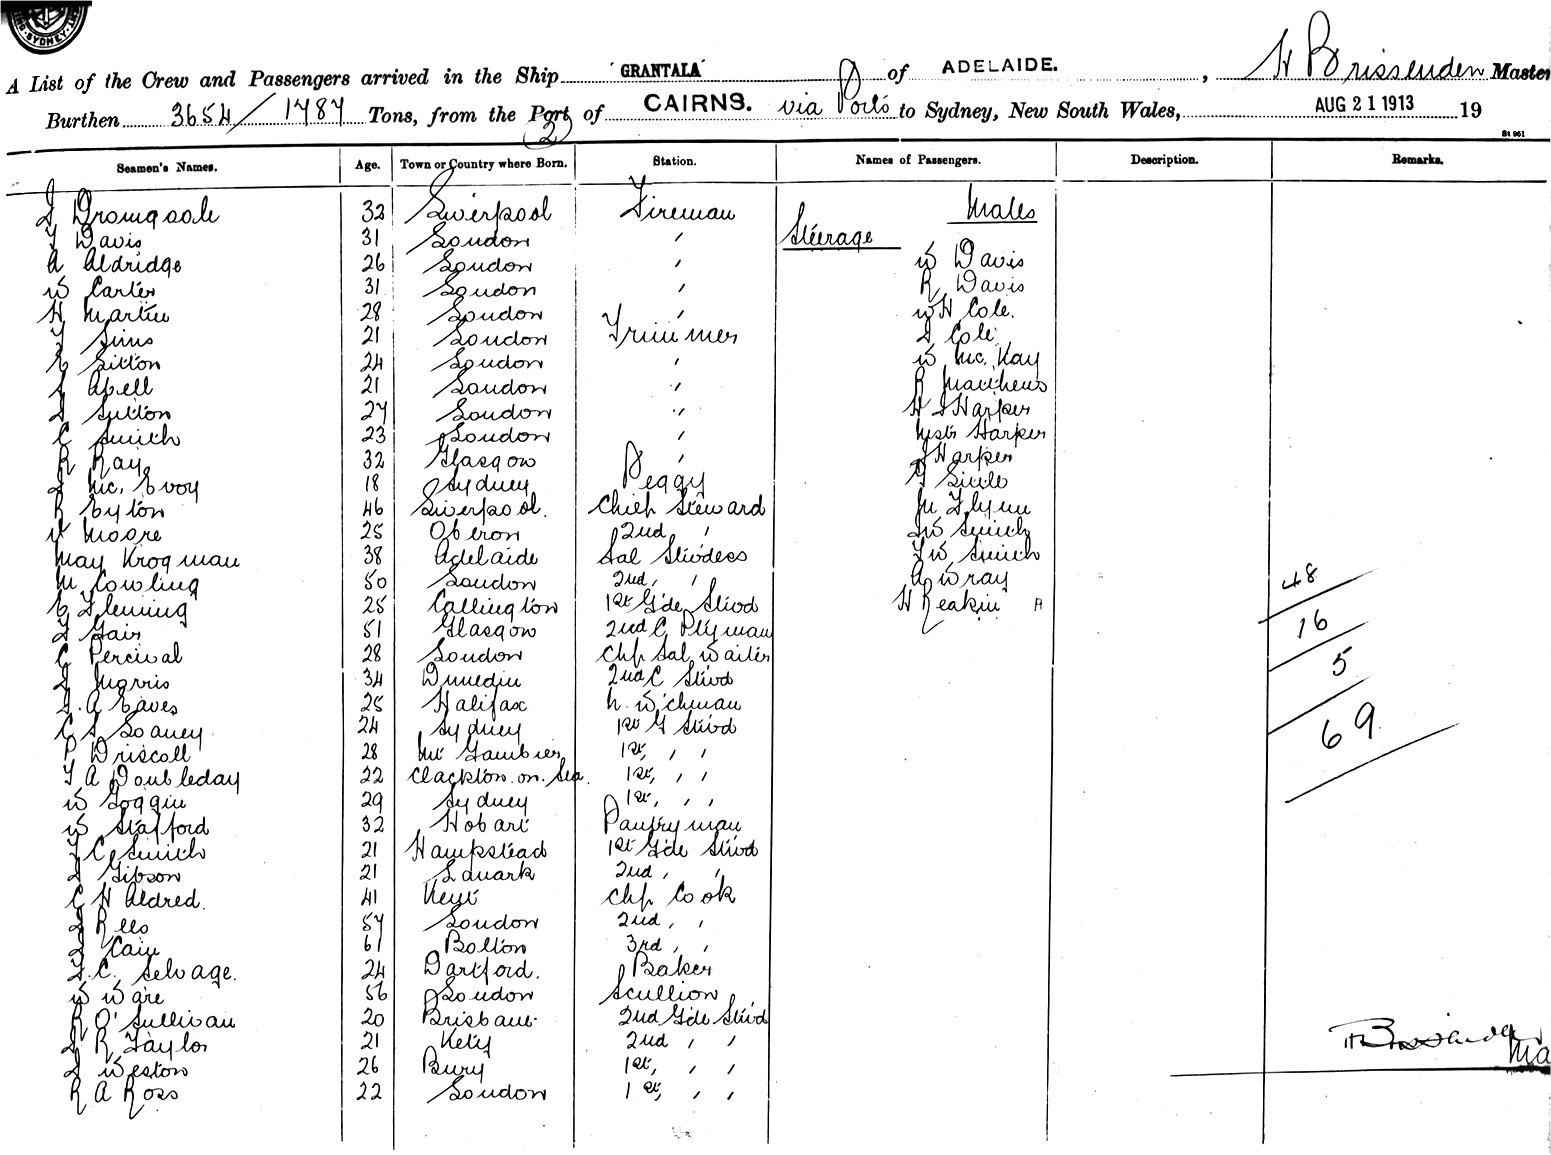 SYDNEY
A List of the Crew and Passengers arrived in the Ship 'GRANTALA' of ADELAIDE., H Brissenden Master
Burthen 3654/1787 Tons, from the Port of CAIRNS. via Ports to Sydney, New South Wales, AUG 21 1913 19
(2)
St 961
Seamen's Names. Age. Town or Country where Born. Station. Names of Passengers. Description. Remarks.
J Dromgoole 32 Liverpool Fireman Males
T Davis 31 London " Steerage
A Aldridge 26 London " W Davis
W Carter 31 London " R Davis
H Martin 28 London " W H Cole.
T Sims 21 London Trimmer J Cole
E Sitton 24 London " W Mc. Kay
J Abell 21 London " R Matthews
J Sutton 27 London " H J Harper
C Smith 23 London " Mstr Harper
R Ray 32 Glasgow " J Harper
J Mc. Evoy 18 Sydney Peggy
R Eyton 46 Liverpool. Chief Steward M Flynn
W Moore 25 Oberon 2nd " J W Smith
May Krogman 38 Adelaide Sal Stwdess T W Smith
M Cowling 50 London 2nd, " A Wray
E Fleming 25 Callington 1st Gde Stwd H Reakin
J Gair 51 Glasgow 2nd C Ptyman
C Percival 28 London Chf Sal Waiter
J Morris 34 Dunedin 2nd C Stwd
J. A Eaves 25 Halifax N. W'chman
C S Loaney 24 Sydney 1st G Stwd
P Driscoll 28 Mt Gambier 1st, " "
T A Doubleday 22 Clackton. on. Sea. 1st, " "
W Goggin 29 Sydney 1st, " "
W Stafford 32 Hobart Pantryman
T C Smith 21 Hampstead 1st Gde Stwd
J Gibson 21 Lanark 2nd, "
C H Aldred. 41 Kent Chf Cook
J Rees 57 London 2nd, "
J Cain 61 Bolton 3rd, "
T. C. Selvage. 24 Dartford. Baker
W Ware 56 London Scullion
R O'Sullivan 20 Brisbane. 2nd Gde Stwd
J R Taylor 21 Kety 2nd, "
J Weston 26 Bury 1st, " "
R A Ross 22 London 1st, " "
48
16
5
69
H Brissenden
Ma